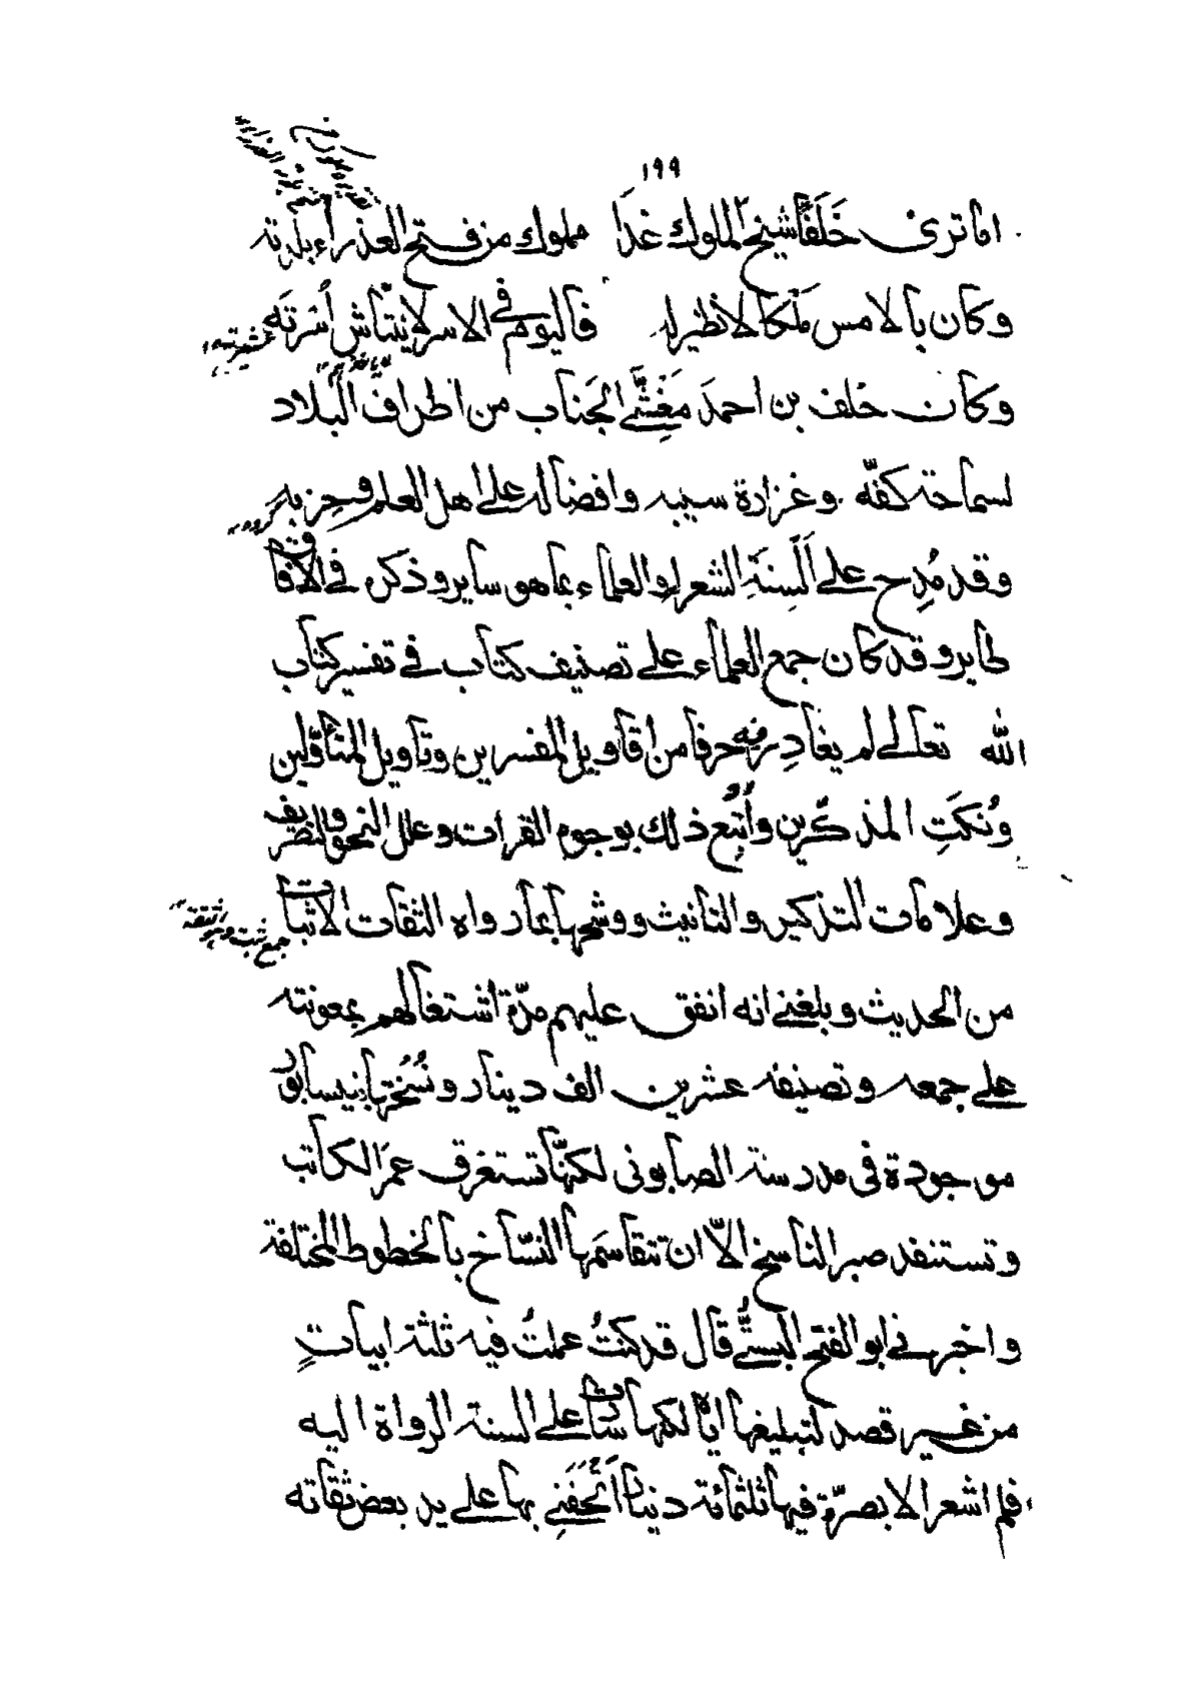 ١٩٩
اما ترى خَلَفًا شيخ الملوك غدَا مملوك من فتح العذراء بلدته
وكان بالامس مَلكا لا نظير له فاليوم فى الاسر لا ينتاش أسرَته
وكان خلف بن احمدَ مَغِشَّى الجَناب من اطراف البلاد
لسماحة كفّه وغزارة سيبه وافضاله على اهل العلم وحِزبه
وقد مُدِح على اَلسِنَةِ الشعراء والعلماء بما هو ساير وذكره فى الآفاق
طاير وقد كان جمع العلماء على تصنيف كتاب فى تفسير كتاب
الله تعالى لم يغادِر فيه حرفا من أقاويل المفسرين وتاويل المتأوّلين
ونُكَتِ المذكّرين وأتبع ذلك بوجوه القرات وعلل النحو والتصريف
وعلامات التذكير والتانيث ووشحها بما رواه الثقات الاثبات
من الحديث وبلغنى انه انفق عليهم مدّة اشتغالهم بمعونته
على جمعه وتصنيفه عشرين الف دينار ونُسُختها بنيسابور
موجودة فى مدرسة الصابونى لكنّها تستغرق عمَر الكاتب
وتستنفد صبر الناسخ الّا ان تتقاسَمها النسّاخ بالخطوط المختلفة
واخبرنى ابو الفتح البستىُّ قال قد كنتُ عملتُ فيه ثلثة ابياتٍ
من غير قصد لتبليغها ايّاه لكنها سارت على السنة الرواة اليه
فلم اشعر الا بصرّة فيها ثلثمائة دينار اَتحَفَنِى بها على يد بعض ثقاته